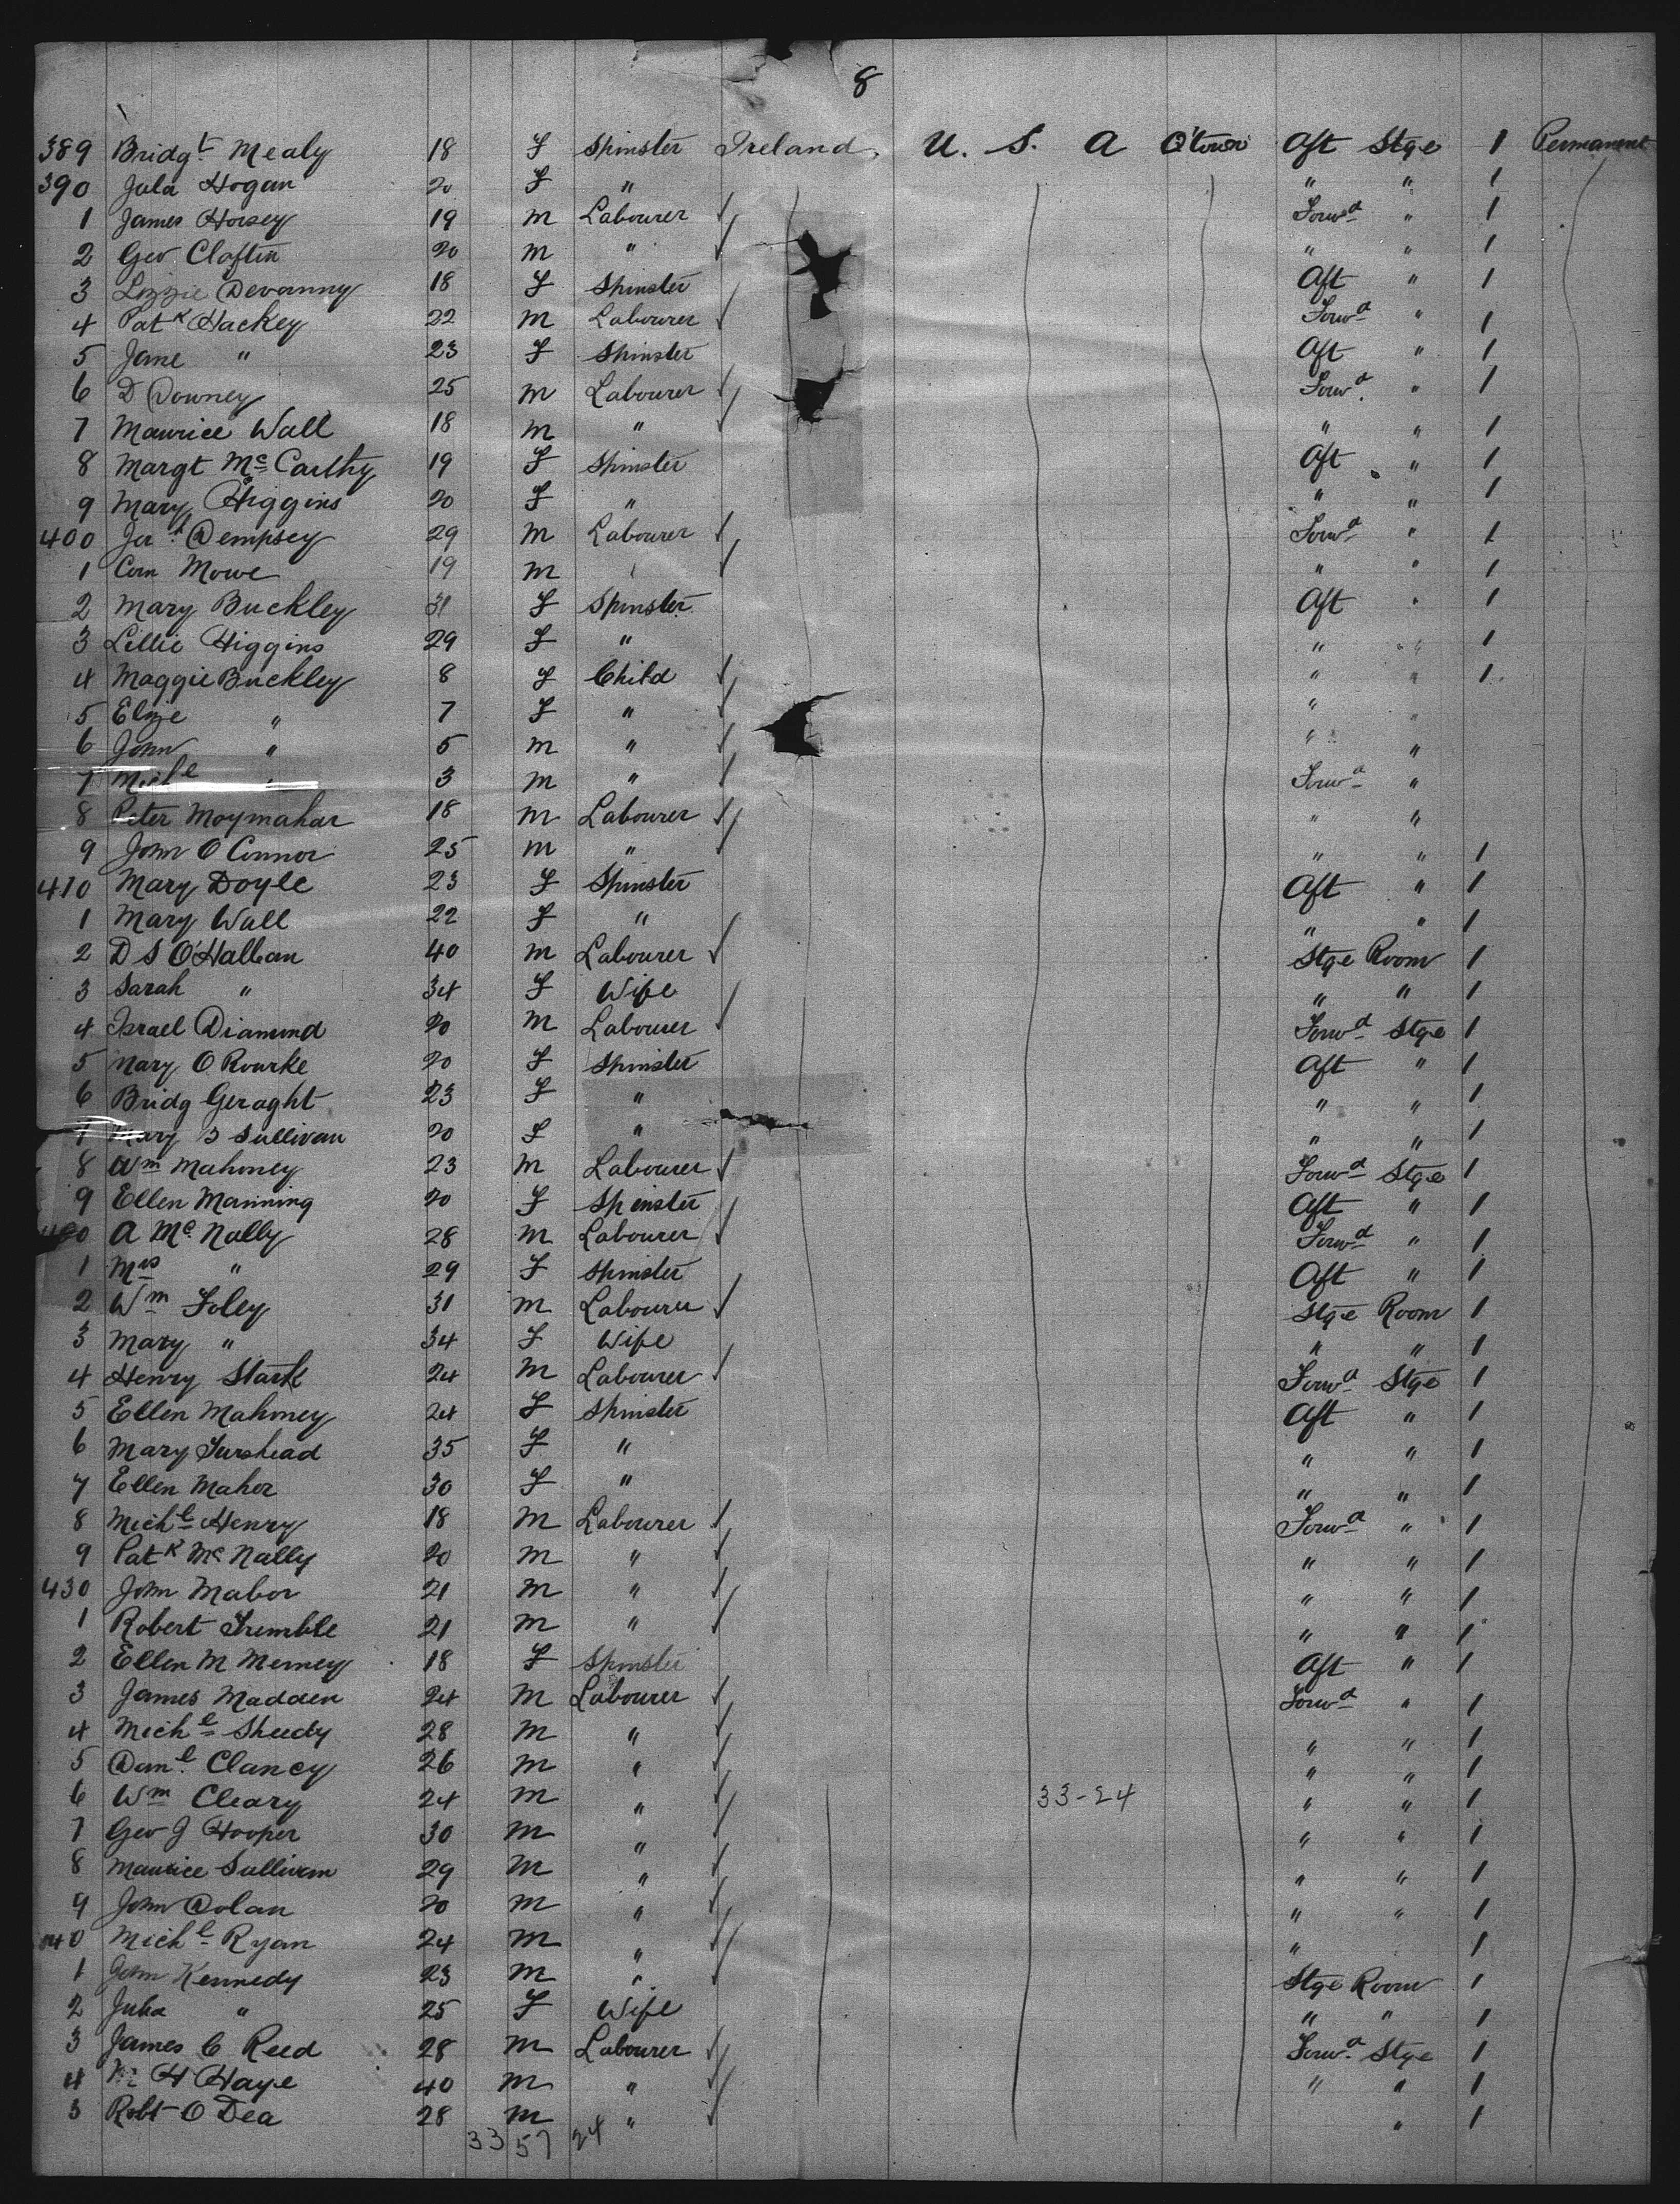 8
389 Bridgt Mealy 18 F Spinster Ireland U. S. A Q'town Aft Stge 1 Permanent
390 Jula Hogan 20 F " " " 1
1 James Horsey 19 m Labourer Forwd " 1
2 Geo Claflin 20 m " " " 1
3 Lizzie Devanny 18 F Spinster Aft " 1
4 Patk Hackey 22 m Labourer Forwd " 1
5 Jane " 23 F Spinster Aft " 1
6 D Downey 25 m Labourer Forwd " 1
7 Maurice Wall 18 m " " " 1
8 Margt McCarthy 19 F Spinster Aft " 1
9 Mary Higgins 20 F " " " 1
400 Jer Dempsey 29 m Labourer Forwd " 1
1 Corn Mowe 19 m " " 1
2 Mary Buckley 31 F Spinster Aft " 1
3 Lillie Higgins 29 F " " " 1
4 Maggie Buckley 8 F Child " " 1
5 Elize " 7 F " " "
6 John " 5 m " " "
7 Michl " 3 m " Forwd "
8 Peter Moymahar 18 m Labourer " "
9 John O Connor 25 m " " " 1
410 Mary Doyle 23 F Spinster Aft " 1
1 Mary Wall 22 F " " " 1
2 D S O'Halloan 40 m Labourer Stge Room 1
3 Sarah " 34 F Wife " " 1
4 Israel Diamond 20 m Labourer Forwd Stge 1
5 Mary O Rourke 20 F Spinster Aft " 1
6 Bridg Geraght 23 F " " " 1
7 Mary B Sullivan 20 F " " " 1
8 Wm Mahoney 23 m Labourer Forwd Stge 1
9 Ellen Manning 20 F Spinster Aft " 1
420 A McNally 28 m Labourer Forwd " 1
1 Mrs " 29 F Spinster Aft " 1
2 Wm Foley 31 m Labourer Stge Room 1
3 Mary " 34 F Wife " " 1
4 Henry Stark 24 m Labourer Forwd Stge 1
5 Ellen Mahoney 24 F Spinster Aft " 1
6 Mary Furshead 35 F " " " 1
7 Ellen Maher 30 F " " " 1
8 Michl Henry 18 m Labourer Forwd " 1
9 Patk McNally 20 m " " " 1
430 John Mabor 21 m " " " 1
1 Robert Trimble 21 m " " " 1
2 Ellen M Merney 18 F Spinster Aft " 1
3 James Madden 24 m Labourer Forwd " 1
4 Michl Sheedy 28 m " " " 1
5 Danl Clancy 26 m " " " 1
6 Wm Cleary 24 m " 33-24 " " 1
7 Geo J Hooper 30 m " " " 1
8 Maurice Sullivan 29 m " " " 1
9 John Dolan 20 m " " " 1
440 Michl Ryan 24 m " " 1
1 John Kennedy 23 m " Stge Room 1
2 Julia " 25 F Wife " " 1
3 James C Reed 28 m Labourer Forwd Stge 1
4 H Haye 40 m " " " 1
5 Robt O Dea 28 m " " 1
33 57 24